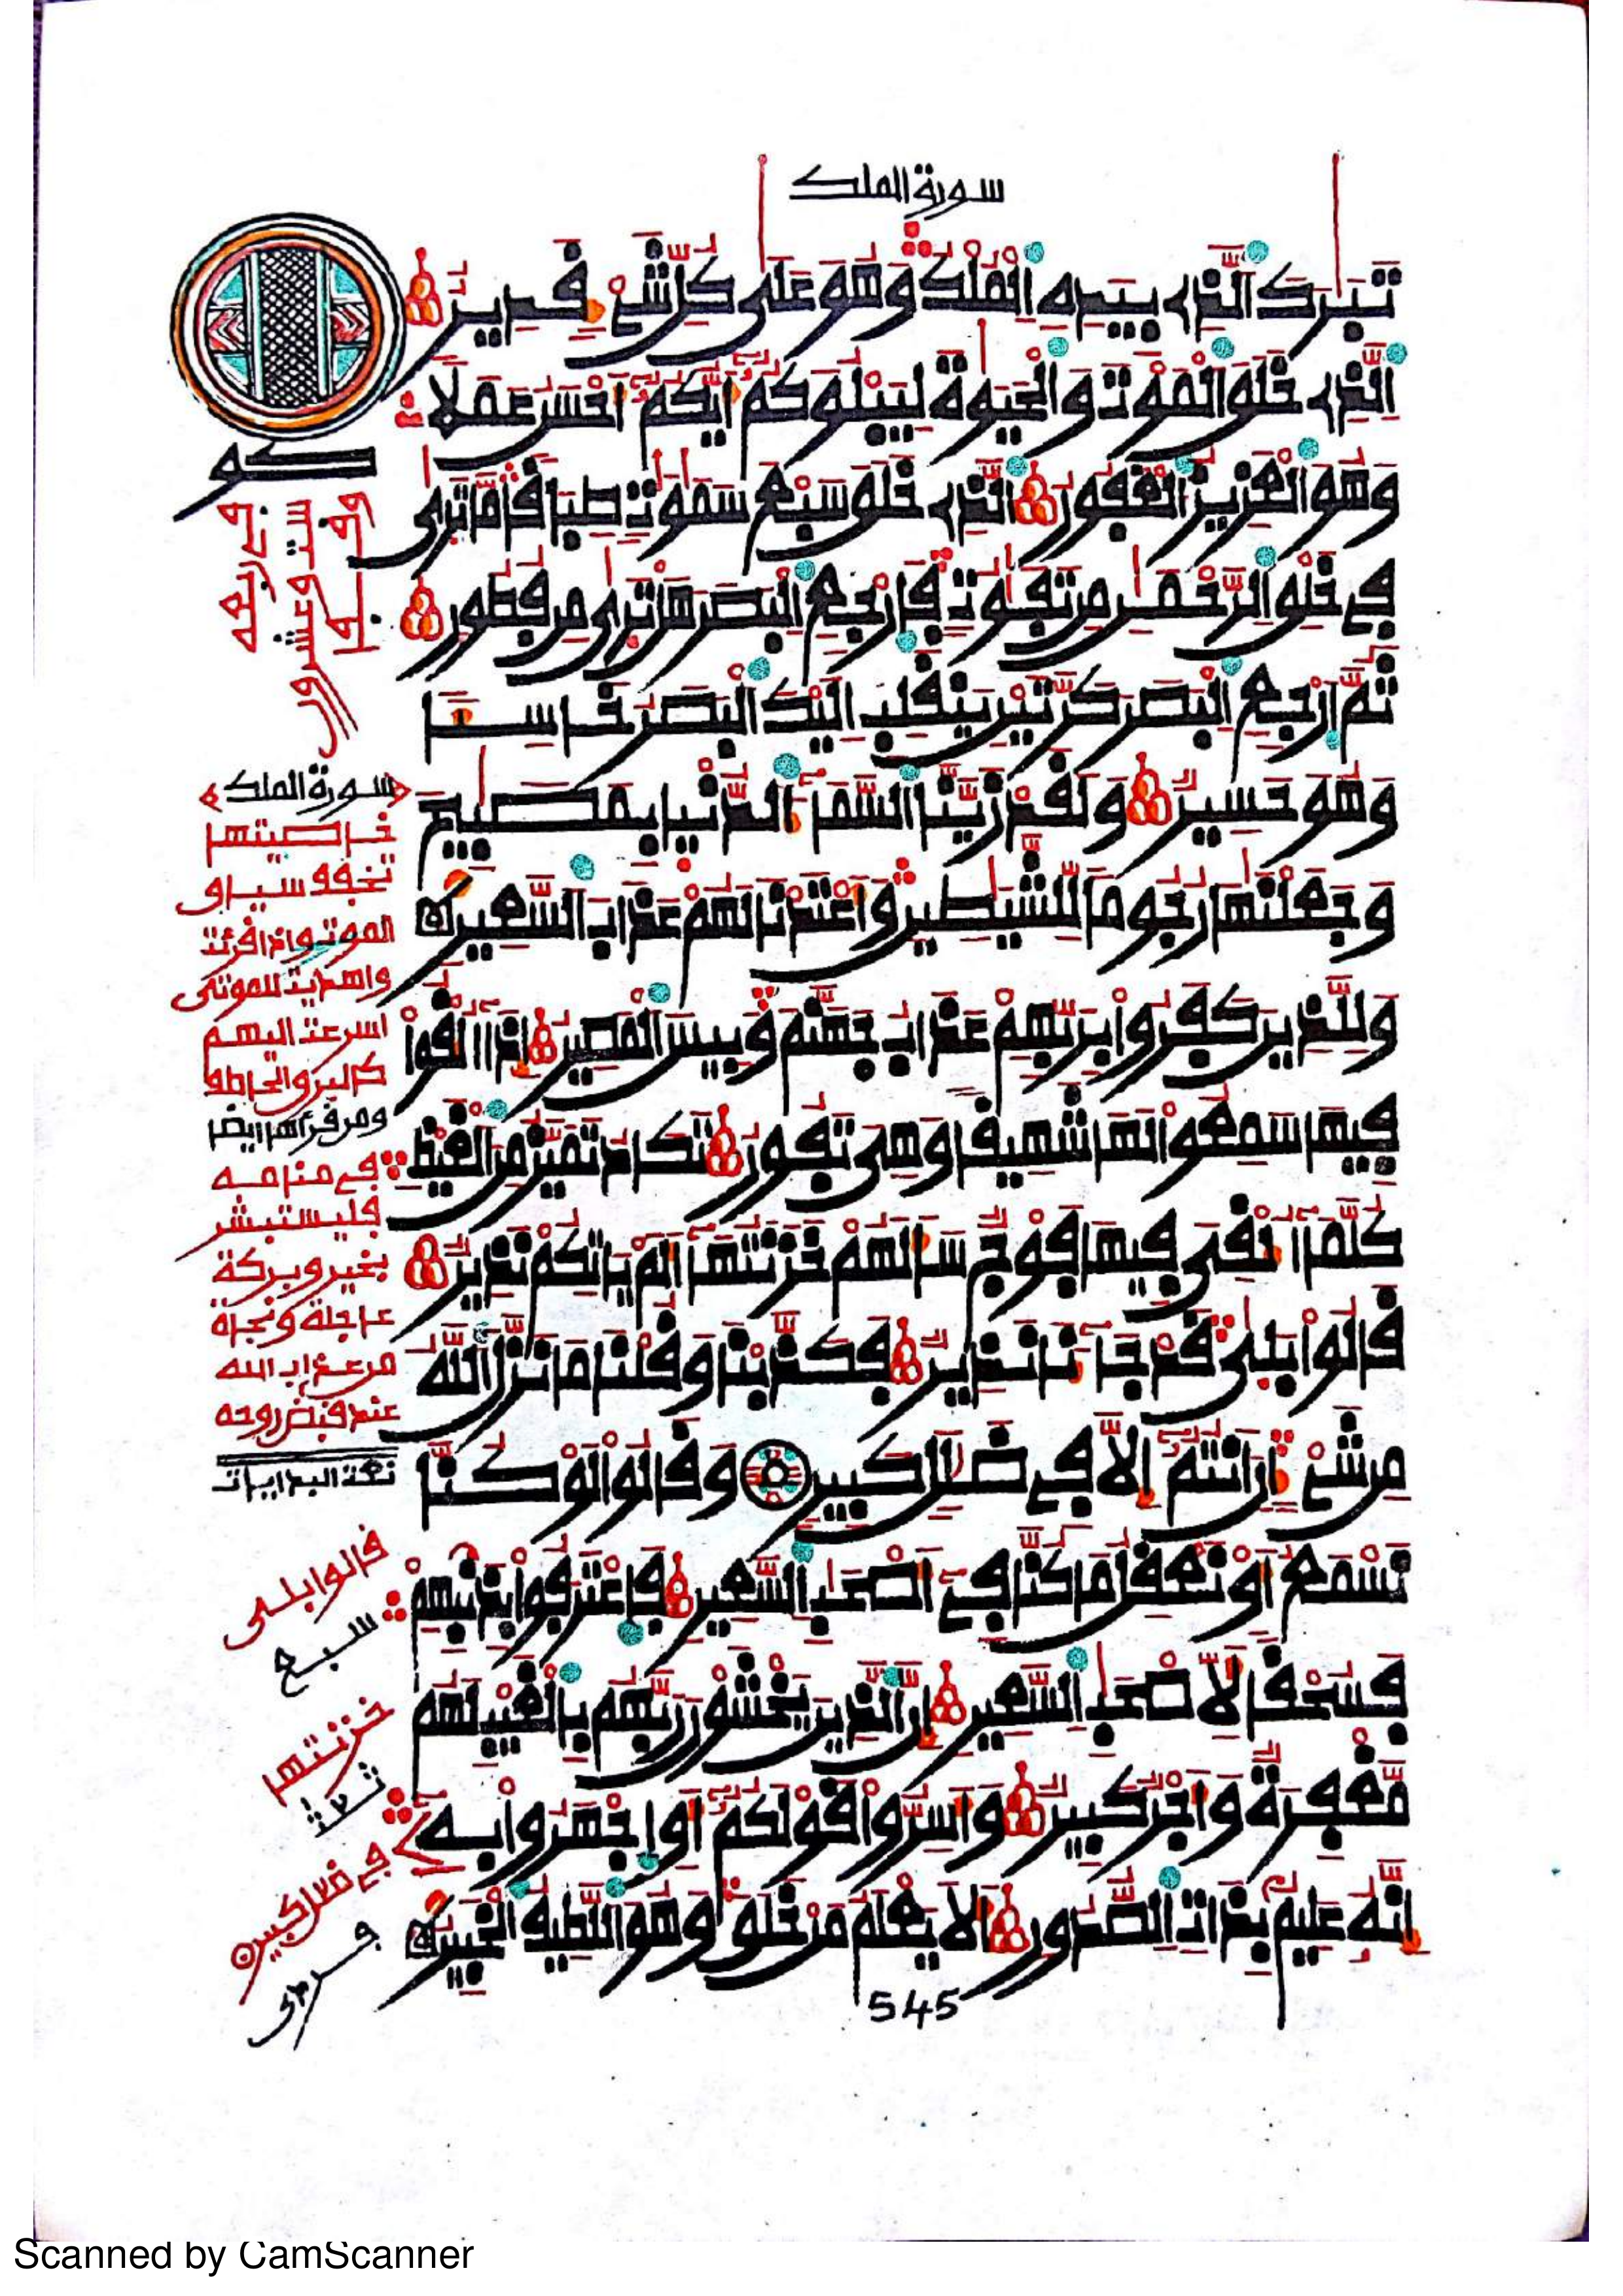 سورة الملك
تَبَٰرَكَ الَّذِي بِيَدِهِ الْمُلْكُ وَهُوَ عَلَىٰ كُلِّ شَيْءٍ قَدِيرٌ
الَّذِي خَلَقَ الْمَوْتَ وَالْحَيَوٰةَ لِيَبْلُوَكُمْ أَيُّكُمْ أَحْسَنُ عَمَلًا
وَهُوَ الْعَزِيزُ الْغَفُورُ الَّذِي خَلَقَ سَبْعَ سَمَٰوَٰتٍ طِبَاقًا مَّا تَرَىٰ
فِي خَلْقِ الرَّحْمَٰنِ مِن تَفَٰوُتٍ فَارْجِعِ الْبَصَرَ هَلْ تَرَىٰ مِن فُطُورٍ
ثُمَّ ارْجِعِ الْبَصَرَ كَرَّتَيْنِ يَنقَلِبْ إِلَيْكَ الْبَصَرُ خَاسِئًا
وَهُوَ حَسِيرٌ وَلَقَدْ زَيَّنَّا السَّمَاءَ الدُّنْيَا بِمَصَٰبِيحَ
وَجَعَلْنَٰهَا رُجُومًا لِّلشَّيَٰطِينِ وَأَعْتَدْنَا لَهُمْ عَذَابَ السَّعِيرِ
وَلِلَّذِينَ كَفَرُوا بِرَبِّهِمْ عَذَابُ جَهَنَّمَ وَبِيسَ الْمَصِيرُ إِذَا أُلْقُوا
فِيهَا سَمِعُوا لَهَا شَهِيقًا وَهِيَ تَفُورُ تَكَادُ تَمَيَّزُ مِنَ الْغَيْظِ
كُلَّمَا أُلْقِيَ فِيهَا فَوْجٌ سَأَلَهُمْ خَزَنَتُهَا أَلَمْ يَاتِكُمْ نَذِيرٌ
قَالُوا بَلَىٰ قَدْ جَاءَنَا نَذِيرٌ فَكَذَّبْنَا وَقُلْنَا مَا نَزَّلَ اللَّهُ
مِن شَيْءٍ إِنْ أَنتُمْ إِلَّا فِي ضَلَٰلٍ كَبِيرٍ وَقَالُوا لَوْ كُنَّا
نَسْمَعُ أَوْ نَعْقِلُ مَا كُنَّا فِي أَصْحَٰبِ السَّعِيرِ فَاعْتَرَفُوا بِذَنبِهِمْ
فَسُحْقًا لِّأَصْحَٰبِ السَّعِيرِ إِنَّ الَّذِينَ يَخْشَوْنَ رَبَّهُم بِالْغَيْبِ لَهُم
مَّغْفِرَةٌ وَأَجْرٌ كَبِيرٌ وَأَسِرُّوا قَوْلَكُمْ أَوِ اجْهَرُوا بِهِ
إِنَّهُ عَلِيمٌ بِذَاتِ الصُّدُورِ أَلَا يَعْلَمُ مَنْ خَلَقَ وَهُوَ اللَّطِيفُ الْخَبِيرُ
545
سورة الملك
خاصيتها
تخفف سياق
الموت وإذا قرئت
واهديت للموتى
اسرعت اليهم
كالبرق الخاطف
ومن قرأها ايضا
في منامه
فليستبشر
بخير وبركة
عاجلة ونجاة
من عذاب الله
عند قبض روحه
قالوا بلى
سبع
خزنتها
في ضلل كبير
Scanned by CamScanner